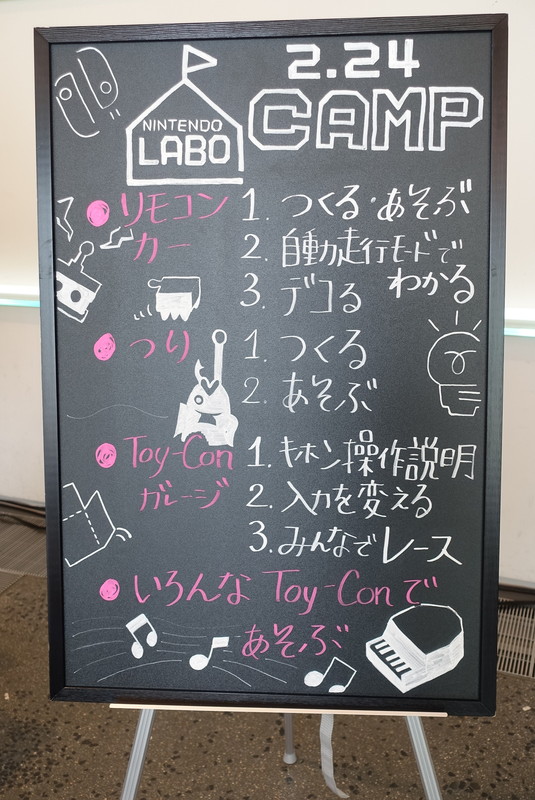 2.24
NINTENDO
LABO
CAMP
リモコン
カー
1. つくる・あそぶ
2. 自動走行モードで
わかる
3. デコる
つり
1. つくる
2. あそぶ
Toy-Con
ガレージ
1. キホン操作説明
2. 入力を変える
3. みんなでレース
いろんな Toy-Conで
あそぶ